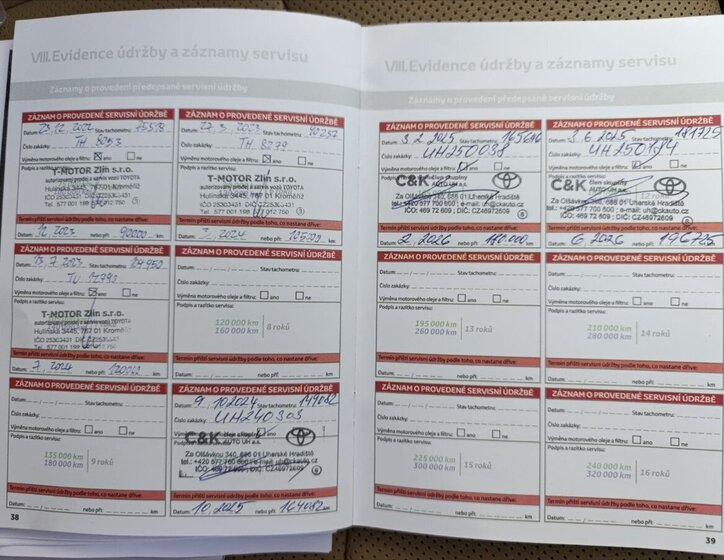 VIII. Evidence údržby a záznamy servisu
Záznamy o provedení předepsané servisní údržby
ZÁZNAM O PROVEDENÉ SERVISNÍ ÚDRŽBĚ
Datum: 23.12.2022 Stav tachometru:
Číslo zakázky: TH 8253
Výměna motorového oleje a filtru: ano ne
Podpis a razítko servisu:
T-MOTOR Zlín s.r.o.
autorizovaný prodej a servis vozů TOYOTA
Hulínská 3445, 767 01 Kroměříž
Tel. 577 001 199
Termín příští servisní údržby podle toho, co nastane dříve:
Datum: 12.2023 nebo při: 90000 km
ZÁZNAM O PROVEDENÉ SERVISNÍ ÚDRŽBĚ
Datum: 22.3.2023 Stav tachometru: 90257
Číslo zakázky: TH 8279
Výměna motorového oleje a filtru: ano ne
Podpis a razítko servisu:
T-MOTOR Zlín s.r.o.
autorizovaný prodej a servis vozů TOYOTA
Hulínská 3445, 767 01 Kroměříž
Tel. 577 001
Termín příští servisní údržby podle toho, co nastane dříve:
Datum: 3.2024 nebo při: km
ZÁZNAM O PROVEDENÉ SERVISNÍ ÚDRŽBĚ
Datum: 13.7.2023 Stav tachometru:
Číslo zakázky:
Výměna motorového oleje a filtru: ano ne
Podpis a razítko servisu:
T-MOTOR Zlín s.r.o.
autorizovaný prodej a servis vozů TOYOTA
Hulínská 3445, 767 01 Kroměříž
Tel. 577 001 199
Termín příští servisní údržby podle toho, co nastane dříve:
Datum: 7.2024 nebo při: km
ZÁZNAM O PROVEDENÉ SERVISNÍ ÚDRŽBĚ
Datum: Stav tachometru:
Číslo zakázky:
Výměna motorového oleje a filtru: ano ne
Podpis a razítko servisu:
120 000 km
160 000 km 8 roků
Termín příští servisní údržby podle toho, co nastane dříve:
Datum: nebo při: km
ZÁZNAM O PROVEDENÉ SERVISNÍ ÚDRŽBĚ
Datum: Stav tachometru:
Číslo zakázky:
Výměna motorového oleje a filtru: ano ne
Podpis a razítko servisu:
135 000 km
180 000 km 9 roků
Termín příští servisní údržby podle toho, co nastane dříve:
Datum: nebo při: km
ZÁZNAM O PROVEDENÉ SERVISNÍ ÚDRŽBĚ
Datum: 9.10.2024 Stav tachometru: 149082
Číslo zakázky: UH240303
Výměna motorového oleje a filtru: ano ne
Podpis a razítko servisu:
C&K člen skupiny
AUTO UH a.s.
Za Olšávkou 340, 686 01 Uherské Hradiště
IČO: 469 72 609 ; DIČ: CZ46972609
Termín příští servisní údržby podle toho, co nastane dříve:
Datum: 10.2025 nebo při: 164082 km
38
VIII. Evidence údržby a záznamy servisu
Záznamy o provedení předepsané servisní údržby
ZÁZNAM O PROVEDENÉ SERVISNÍ ÚDRŽBĚ
Datum: 3.2.2025 Stav tachometru: 165696
Číslo zakázky: UH250038
Výměna motorového oleje a filtru: ano ne
Podpis a razítko servisu:
C&K člen skupiny
AUTO UH a.s.
Za Olšávkou 340, 686 01 Uherské Hradiště
IČO: 469 72 609 ; DIČ: CZ46972609
Termín příští servisní údržby podle toho, co nastane dříve:
Datum: 2.2026 nebo při: km
ZÁZNAM O PROVEDENÉ SERVISNÍ ÚDRŽBĚ
Datum: 3.6.2025 Stav tachometru: 181725
Číslo zakázky:
Výměna motorového oleje a filtru: ano ne
Podpis a razítko servisu:
C&K člen skupiny
AUTO UH a.s.
Za Olšávkou 340, 686 01 Uherské Hradiště
IČO: 469 72 609 ; DIČ: CZ46972609
Termín příští servisní údržby podle toho, co nastane dříve:
Datum: 6.2026 nebo při: 196725 km
ZÁZNAM O PROVEDENÉ SERVISNÍ ÚDRŽBĚ
Datum: Stav tachometru:
Číslo zakázky:
Výměna motorového oleje a filtru: ano ne
Podpis a razítko servisu:
195 000 km
260 000 km 13 roků
Termín příští servisní údržby podle toho, co nastane dříve:
Datum: nebo při: km
ZÁZNAM O PROVEDENÉ SERVISNÍ ÚDRŽBĚ
Datum: Stav tachometru:
Číslo zakázky:
Výměna motorového oleje a filtru: ano ne
Podpis a razítko servisu:
210 000 km
280 000 km 14 roků
Termín příští servisní údržby podle toho, co nastane dříve:
Datum: nebo při: km
ZÁZNAM O PROVEDENÉ SERVISNÍ ÚDRŽBĚ
Datum: Stav tachometru:
Číslo zakázky:
Výměna motorového oleje a filtru: ano ne
Podpis a razítko servisu:
225 000 km
300 000 km 15 roků
Termín příští servisní údržby podle toho, co nastane dříve:
Datum: nebo při: km
ZÁZNAM O PROVEDENÉ SERVISNÍ ÚDRŽBĚ
Datum: Stav tachometru:
Číslo zakázky:
Výměna motorového oleje a filtru: ano ne
Podpis a razítko servisu:
240 000 km
320 000 km 16 roků
Termín příští servisní údržby podle toho, co nastane dříve:
Datum: nebo při: km
39